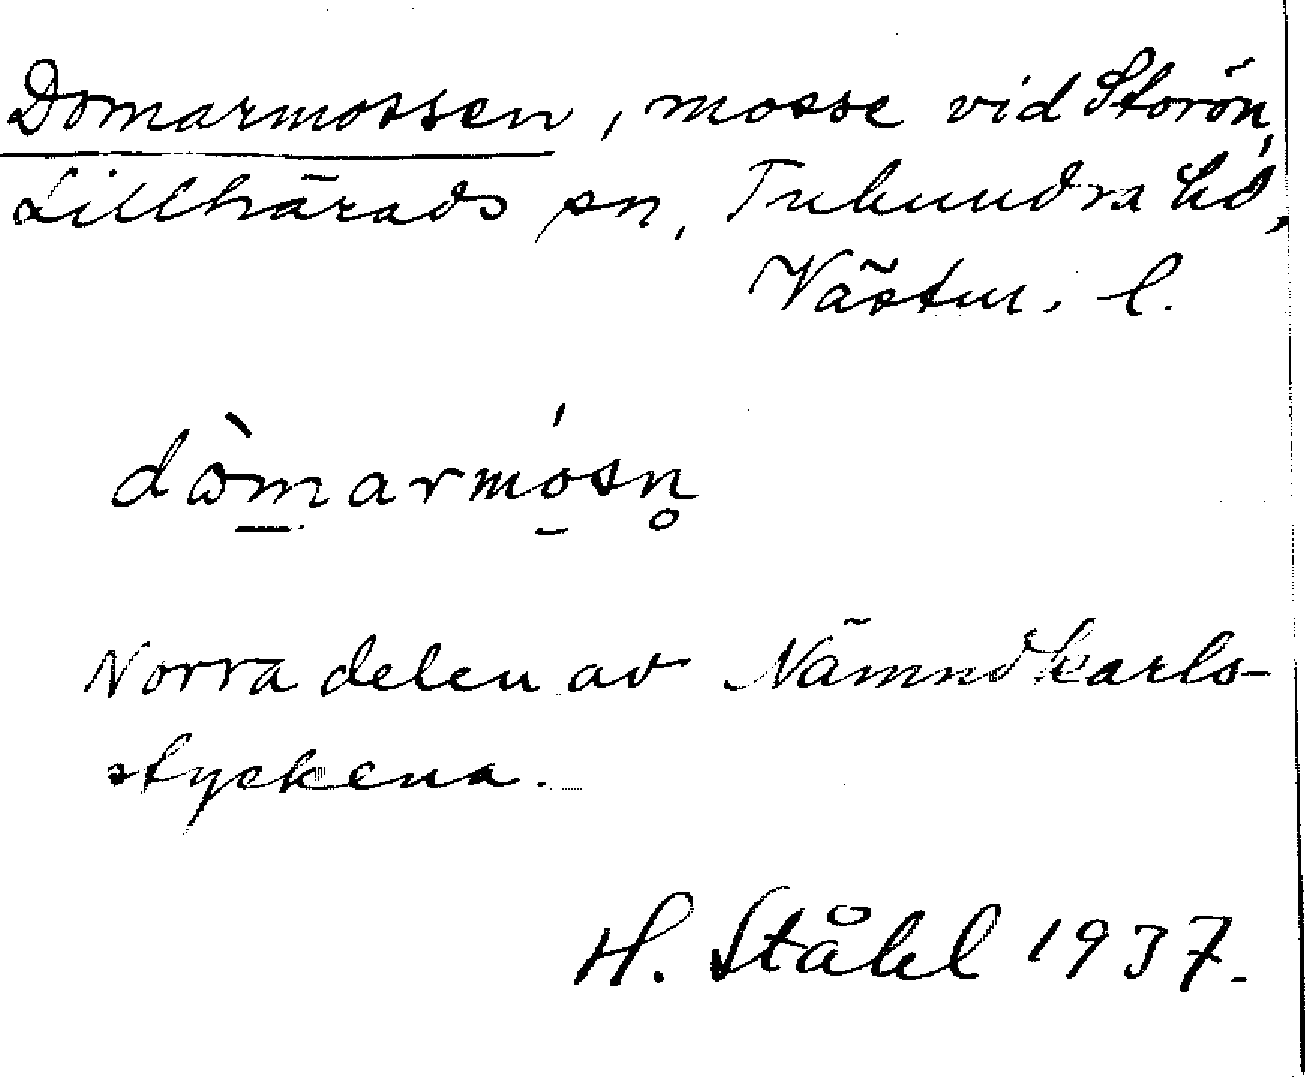 Domarmossen, mosse vid Storön,
Lillhärads sn, Tuhundra hd,
Västm. l.
dὼmarmósn̥
Norra delen av Nämndkarls-
styckena.
H. Ståhl 1937.